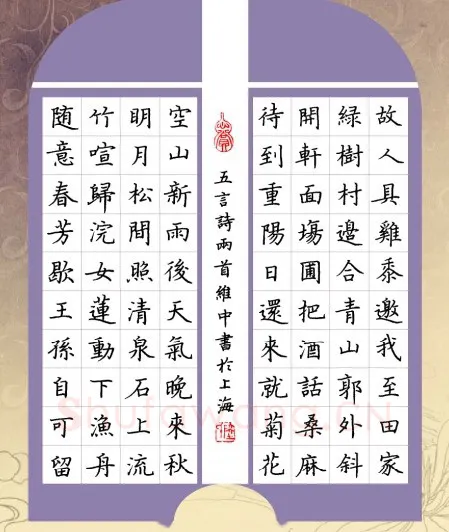 故人具雞黍邀我至田家
綠樹村邊合青山郭外斜
開軒面塲圃把酒話桑麻
待到重陽日還來就菊花
五言詩兩首維中書於上海
空山新雨後天氣晚來秋
明月松間照清泉石上流
竹喧歸浣女蓮動下漁舟
随意春芳歇王孫自可留
Shufawang.CN